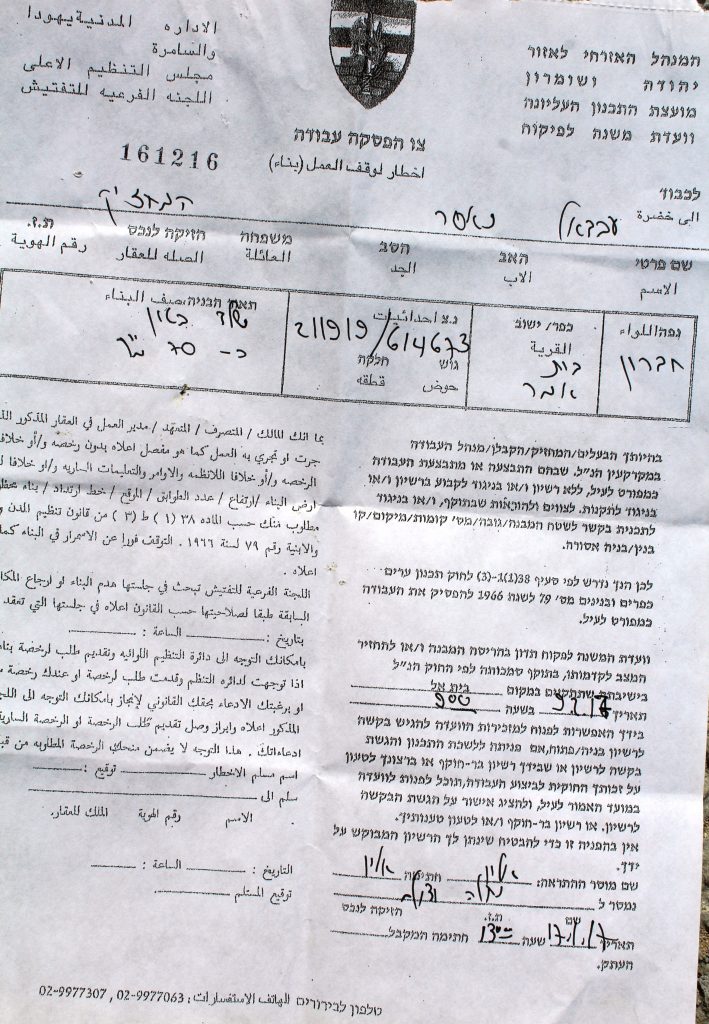 המנהל האזרחי לאזור
יהודה ושומרון
מועצת התכנון העליונה
וועדת משנה לפיקוח
الاداره المدنية يهودا
والسامرة
مجلس التنظيم الاعلى
اللجنه الفرعيه للتفتيش
צו הפסקה עבודה
اخطار لوقف العمل (بناء)
161216
לכבוד
الى حضرة
המחזיק
שם פרטי האב הסב משפחה חזיקה לנכס ת.ז.
الاسم الاب الجد العائلة الصله للعقار رقم الهوية
נפה اللواء כפר/ישוב נ.צ احداثيات תאור הבניה وصف البناء
חברון القرية 211919/614673
בית גוש חלקה
אומר حوض قطقه כ- 70 מ"ר
בהיותך הבעלים/המחזיק/הקבלן/מנהל העבודה
במקרקעין הנ"ל, שבהם התבצעה או מתבצעת העבודה
כמפורט לעיל, ללא רשיון ו/או בניגוד לקבוע ברשיון ו/או
בניגוד לתקנות. לצווים ולהוראות שבתוקף, ו/או בניגוד
לתכנית בקשר לשטח המבנה/גובה/מס' קומות/מיקום/קו
בנין/בניה אסורה.
לכן הנך נדרש לפי סעיף 38(1)(1-3) לחוק תכנון ערים
כפרים ובנינים מס' 79 לשנת 1966 להפסיק את העבודה
כמפורט לעיל.
וועדת המשנה לפקוח תדון בהריסת המבנה ו/או להחזיר
המצב לקדמותו, בתוקף סמכותה לפי החוק הנ"ל
בישיבתה שתתקיים במקום בית אל
תאריך בשעה 900
בידך האפשרות לפנות למזכירות הוועדה להגיש בקשה
לרשיון בניה/פתוח, אם פניתה ללשכת התכנון והגשת
בקשה לרשיון או שבידך רשיון בר-תוקף או ברצונך לטעון
על זכותך החוקית לביצוע העבודה, תוכל לפנות לוועדה
במועד האמור לעיל, ולהציג אישור על הגשת הבקשה
לרשיון. או רשיון בר-תוקף ו/או לטעון טענותיך.
אין בהפניה זו כדי להבטיח שינתן לך הרשיון המבוקש על
ידך.
שם מוסר ההתראה: חתימה
נמסר ל
שם ת.ז. חזיקה לנכס
תאריך 17.1.17 שעה 1300 חתימה המקבל
העתק.
بما انك المالك / المتصرف / المتعهد / مدير العمل في العقار المذكور
جرت او تجري به العمل كما هو مفصل اعلاه بدون رخصه و/أو خلافا
الرخصه و/أو خلافا للانظمه والاوامر والتعليمات الساريه و/او خلافا
ارض البناء /ارتفاع / عدد الطوابق / الموقع / خط ارتداد / بناء
مطلوب منك حسب الماده ٣٨ (١) ط (٣) من قانون تنظيم المدن
والابنية رقم ٧٩ لسنة ١٩٦٦ . التوقف فورا عن الاسمرار في البناء كما
اعلاه .
اللجنة الفرعية للتفتيش تبحث في جلستها هدم البناء او ارجاع
السابقة طبقا لصلاحيتها حسب القانون اعلاه في جلستها التي تعقد
بتاريخ : الساعة :
بامكانك التوجه الى دائرة التنظيم اللوائيه وتقديم طلب لرخصة
اذا توجهت لدائره التنظم وقدمت طلب لرخصة او عندك رخصة
او برغبتك الادعاء بحقك القانوني لإنجاز بامكانك التوجه الى
المذكور اعلاه وابراز وصل تقديم طلب الرخصة او الرخصة
ادعاءاتك . هذا التوجه لا يضمن منحك الرخصة المطلوبه من
اسم مسلم الاخطار توقيع :
سلم الى
الاسم رقم الهوية الملك للعقار.
التاريخ : الساعة :
توقيع المستلم
טלפון לבירורים الهاتف الاستفسارات : 02-9977063 , 02-9977307